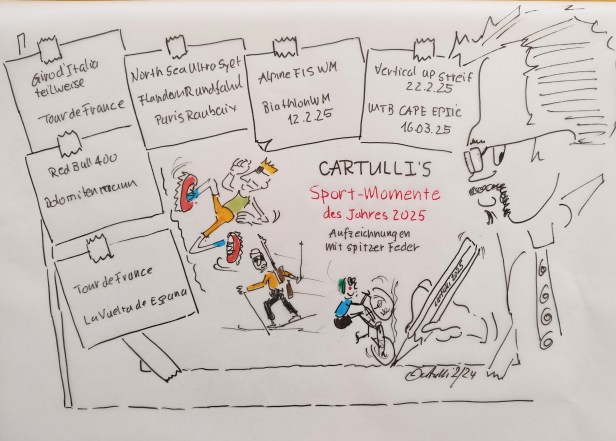 Giro d'Italia
teilweise
Tour de France
North Sea Ultra Sylt
Flandern Rundfahrt
Paris Roubaix
Alpine FIS WM
Biathlon WM
12.2.25
Vertical up Streif
22.2.25
MTB CAPE EPIC
16.03.25
Red Bull 400
Dolomitenmann
Tour de France
La Vuelta de Espana
CARTULLI'S
Sport-Momente
des Jahres 2025
Aufzeichnungen
mit spitzer Feder